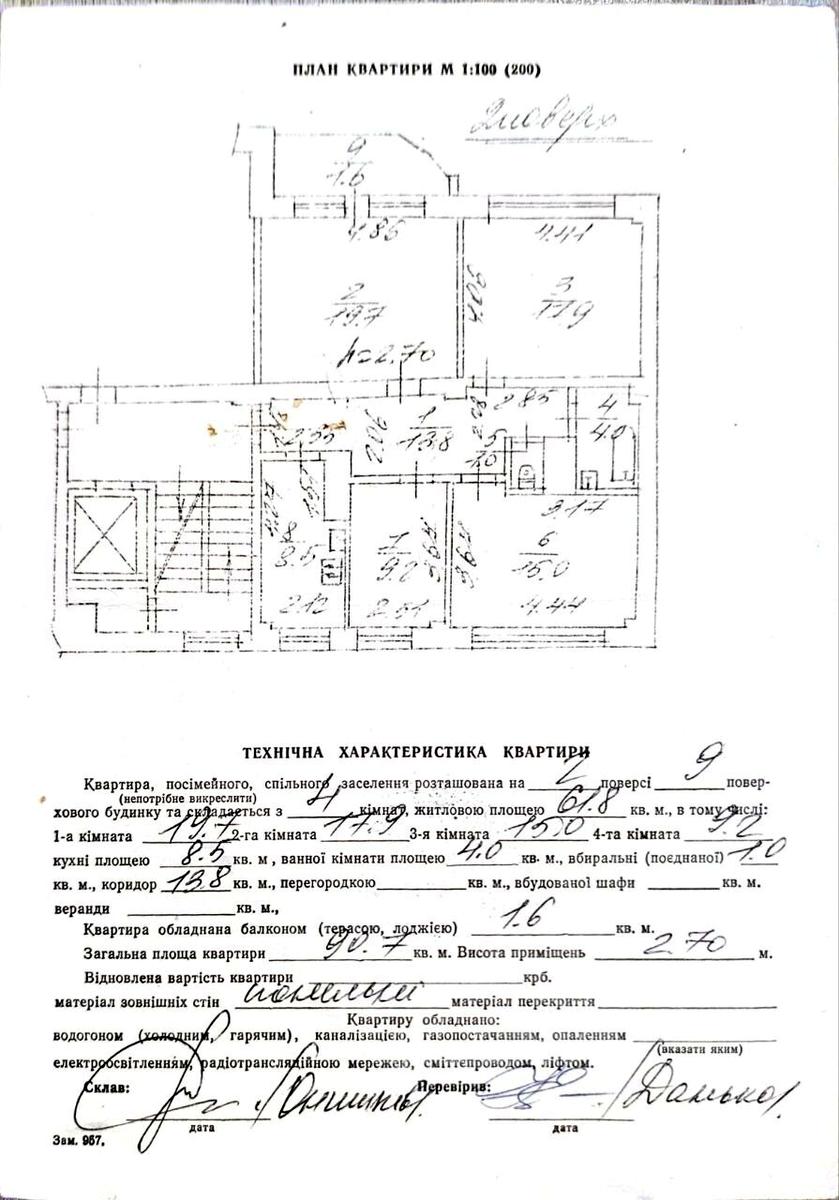 ПЛАН КВАРТИРИ М 1:100 (200)
2 поверх
9
1.6
4.86
4.41
2
19.7
4.06
3
17.9
h=2.70
2.85
1
13.8
4
4.0
2.55
2.06
5
1.0
3.17
8
8.5
7
9.2
6
15.0
2.12
2.51
4.44
ТЕХНІЧНА ХАРАКТЕРИСТИКА КВАРТИРИ
Квартира, посімейного, спільного заселення розташована на 2 поверсі 9 повер-
(непотрібне викреслити)
хового будинку та складається з 4 кімнат, житловою площею 61.8 кв. м., в тому числі:
1-а кімната 19.7 2-га кімната 17.9 3-я кімната 15.0 4-та кімната 9.2
кухні площею 8.5 кв. м , ванної кімнати площею 4.0 кв. м., вбиральні (поєднаної) 1.0
кв. м., коридор 13.8 кв. м., перегородкою кв. м., вбудованої шафи кв. м.
веранди кв. м.,
Квартира обладнана балконом (терасою, лоджією) 1.6 кв. м.
Загальна площа квартири 90.7 кв. м. Висота приміщень 2.70 м.
Відновлена вартість квартири крб.
матеріал зовнішніх стін панельні матеріал перекриття
Квартиру обладнано:
водогоном (холодним, гарячим), каналізацією, газопостачанням, опаленням
(вказати яким)
електроосвітленням, радіотрансляційною мережею, сміттєпроводом, ліфтом.
Склав: Перевірив: Данько
дата дата
Зам. 957.